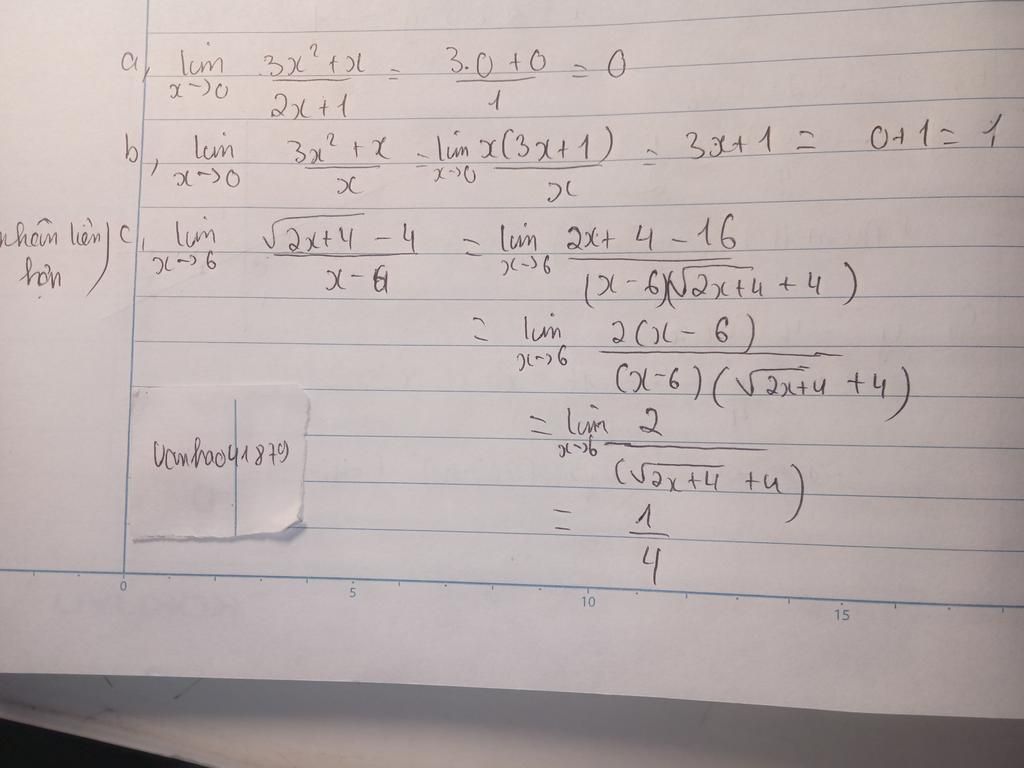 a, lim x→0 (3x² + x)/(2x + 1) = (3.0 + 0)/1 = 0
b, lim x→0 (3x² + x)/x = lim x→0 x(3x + 1)/x = 3x + 1 = 0 + 1 = 1
nhân liên hợp) c, lim x→6 (√(2x+4) - 4)/(x - 6) = lim x→6 (2x + 4 - 16)/((x - 6)(√(2x+4) + 4))
= lim x→6 2(x - 6)/((x - 6)(√(2x+4) + 4))
= lim x→6 2/(√(2x+4) + 4)
= 1/4
Vanhao041879
0 5 10 15